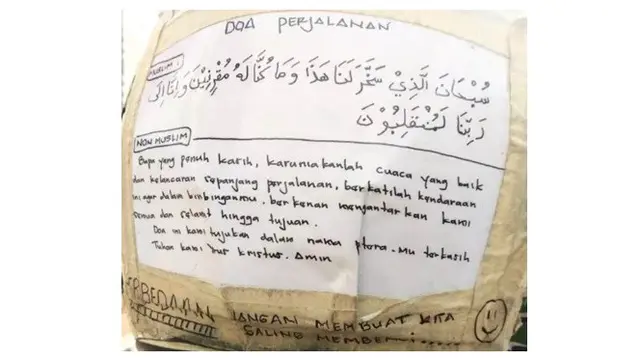 DOA PERJALANAN
MUSLIM :
سُبْحَانَ الَّذِيْ سَخَّرَ لَنَا هَذَا وَمَا كُنَّا لَهُ مُقْرِنِيْنَ وَإِنَّا إِلَى
رَبِّنَا لَمُنْقَلِبُوْنَ
NON MUSLIM
Bapa yang penuh kasih, karuniakanlah cuaca yang baik
dan kelancaran sepanjang perjalanan, berkatilah kendaraan
ini agar dalam bimbinganmu, berkenan mengantarkan kami
semua dan selamt hingga tujuan.
Doa ini kami tujukan dalam nama ptora-Mu terkasih
Tuhan kami kristus. Amin
PERBEDAAN
JANGAN MEMBUAT KITA
SALING MEMBENCI